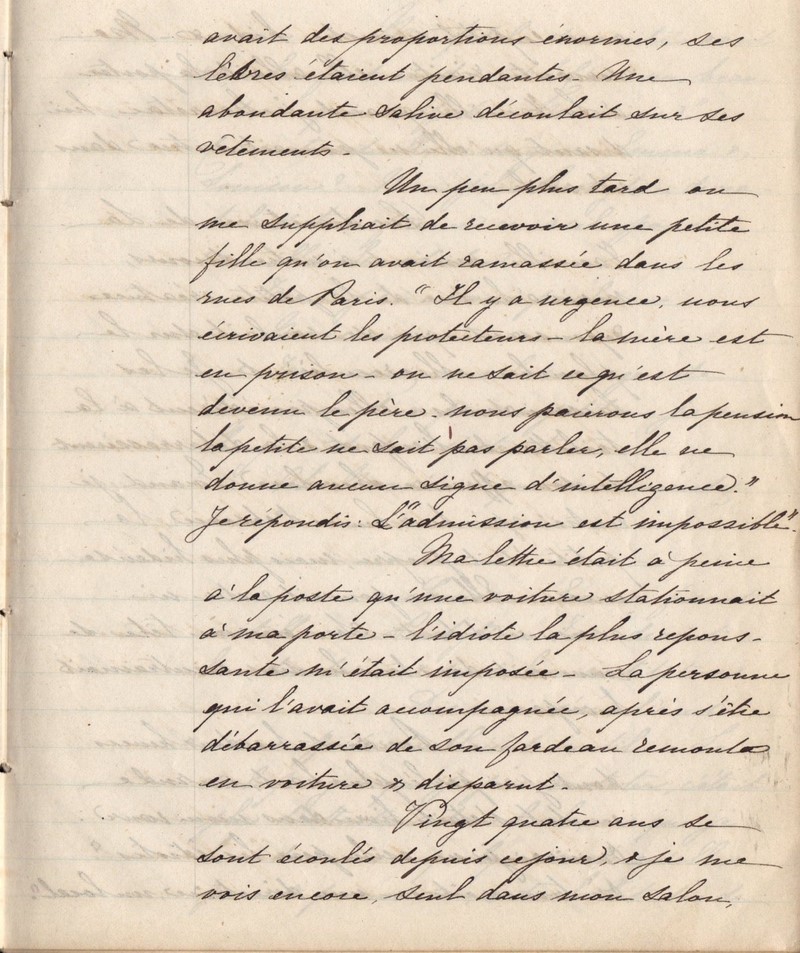 avait des proportions énormes, ses
lèvres étaient pendantes - Une
abondante salive découlait sur ses
vêtements -
Un peu plus tard on
me suppliait de recevoir une petite
fille qu'on avait ramassée dans les
rues de Paris. "Il y a urgence, nous
écrivaient les protecteurs - la mère est
en prison - on ne sait ce qu'est
devenu le père - nous paierons la pension
la petite ne sait pas parler, elle ne
donne aucun signe d'intelligence."
Je répondis: L'"admission est impossible".
Ma lettre était à peine
à la poste qu'une voiture stationnait
à ma porte - l'idiote la plus repous-
sante m'était imposée - La personne
qui l'avait accompagnée, après s'être
débarrassée de son fardeau remonta
en voiture & disparut -
Vingt quatre ans se
sont écoulés depuis ce jour, & je me
vois encore, seul dans mon salon,